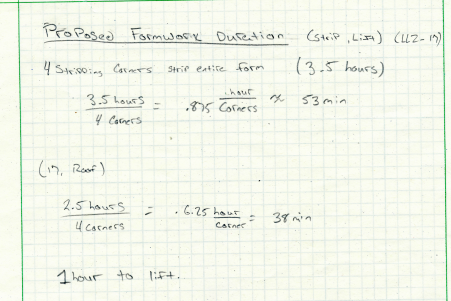 Proposed Formwork Duration (Strip, Lift) (LL2-17)
4 Stripping Corners strip entire form (3.5 hours)
3.5 hours / 4 Corners = .875 hour / Corners ≈ 53 min
(17, Roof)
2.5 hours / 4 corners = .625 hour / corner = 38 min
1 hour to lift.